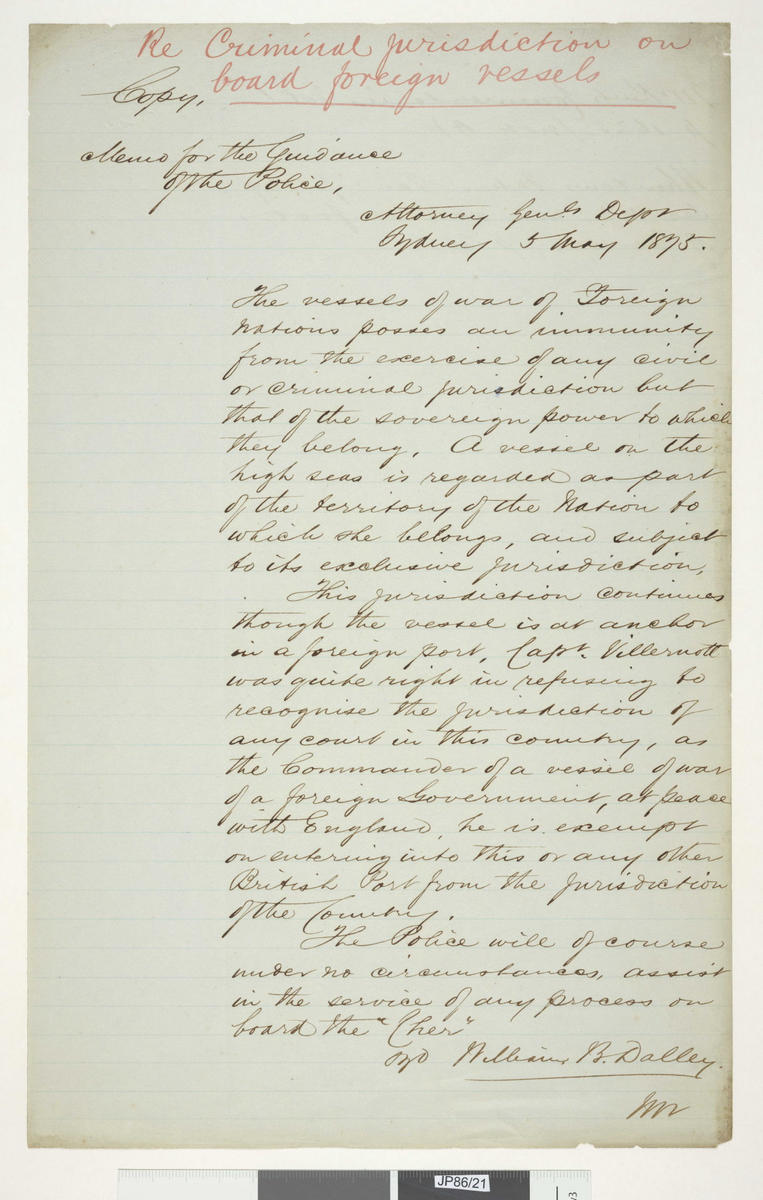 Re Criminal jurisdiction on
board foreign vessels
Copy,
Memo for the Guidance
of the Police,
Attorney Genl's Dept
Sydney 5 May 1875.
The vessels of war of Foreign
Nations posses an immunity
from the exercise of any civil
or criminal jurisdiction but
that of the sovereign power to which
they belong, A vessel on the
high seas is regarded as part
of the territory of the Nation to
which she belongs, and subject
to its exclusive jurisdiction,
This jurisdiction continues
though the vessel is at anchor
in a foreign port, Capt. Villernott
was quite right in refusing to
recognise the jurisdiction of
any court in this country, as
the Commander of a vessel of war
of a foreign Government, at peace
with England, he is exempt
on entering into this or any other
British Port from the jurisdiction
of the Country.
The Police will of course
under no circumstances, assist
in the service of any process on
board the "Cher"
William B. Dalley.
JP86/21